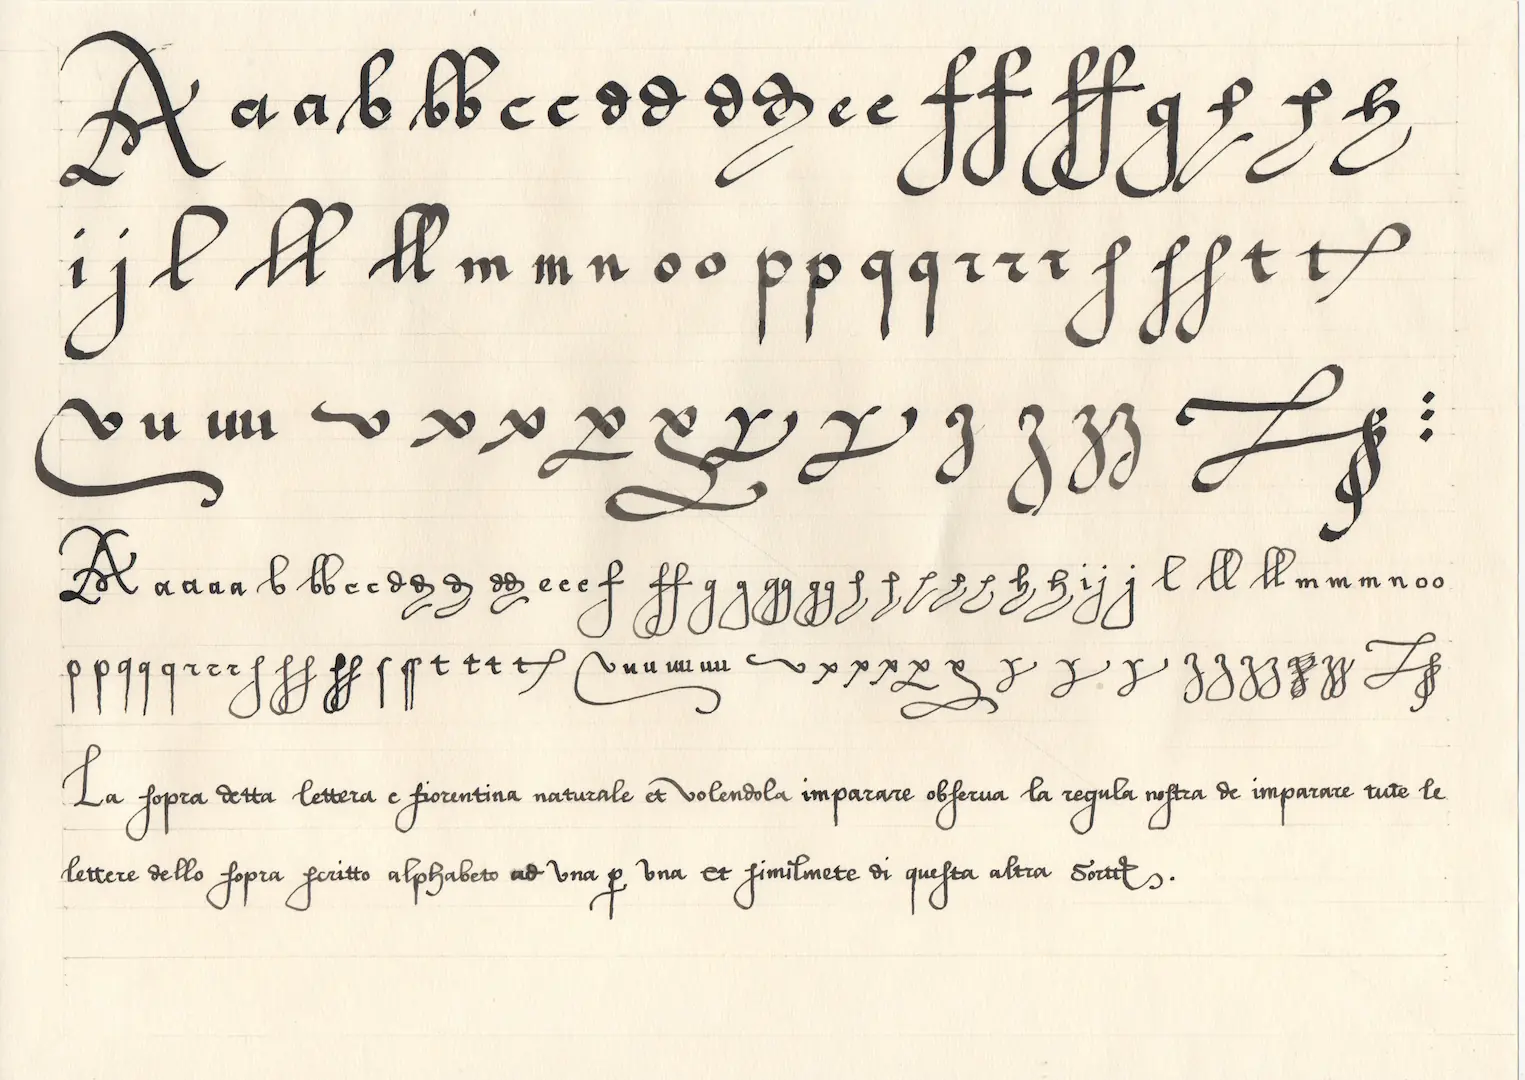 A a a b bb c c d d d d e e f f ff g h h h
i j l ll ll m m n o o p p q q r r r s ss t t
v u uu v x x x x y y z z zz
A a a a a b bb c c d d d d dd e e e f ff g g gg gg h h h h h h h i j j l ll ll m m m n o o
p p q q q r r r s ss ss ſ ſſ t t t t v u u uu uu v x x x x x y y y z z zz zz zz
La sopra detta lettera e fiorentina naturale et volendola imparare obserua la regula nostra de imparare tute le
lettere dello sopra scritto alphabeto ad vna ꝑ vna et similmete di questa altra